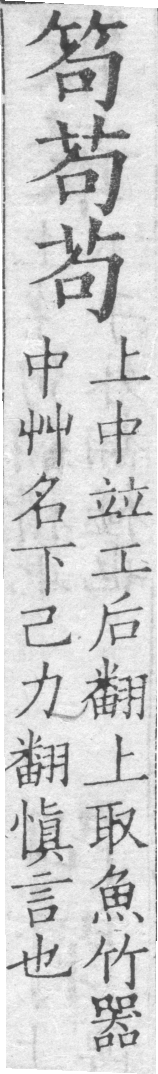 笱苟茍
上中竝工后翻上取魚竹器
中艸名下己力翻愼言也